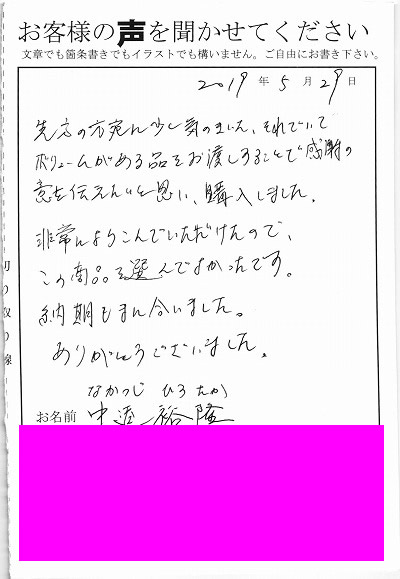 お客様の声を聞かせてください
文章でも箇条書きでもイラストでも構いません。ご自由にお書き下さい。
2019年5月29日
先方の方宛に少し気のきいた、それでいて
ボリュームがある品をお渡しすることで感謝の
意を伝えたいと思い、購入しました。
非常によろこんでいただけたので、
この商品を選んでよかったです。
納期もまに合いました。
ありがとうございました。
なかつじ ひろたか
お名前 中 裕隆
切り取り線